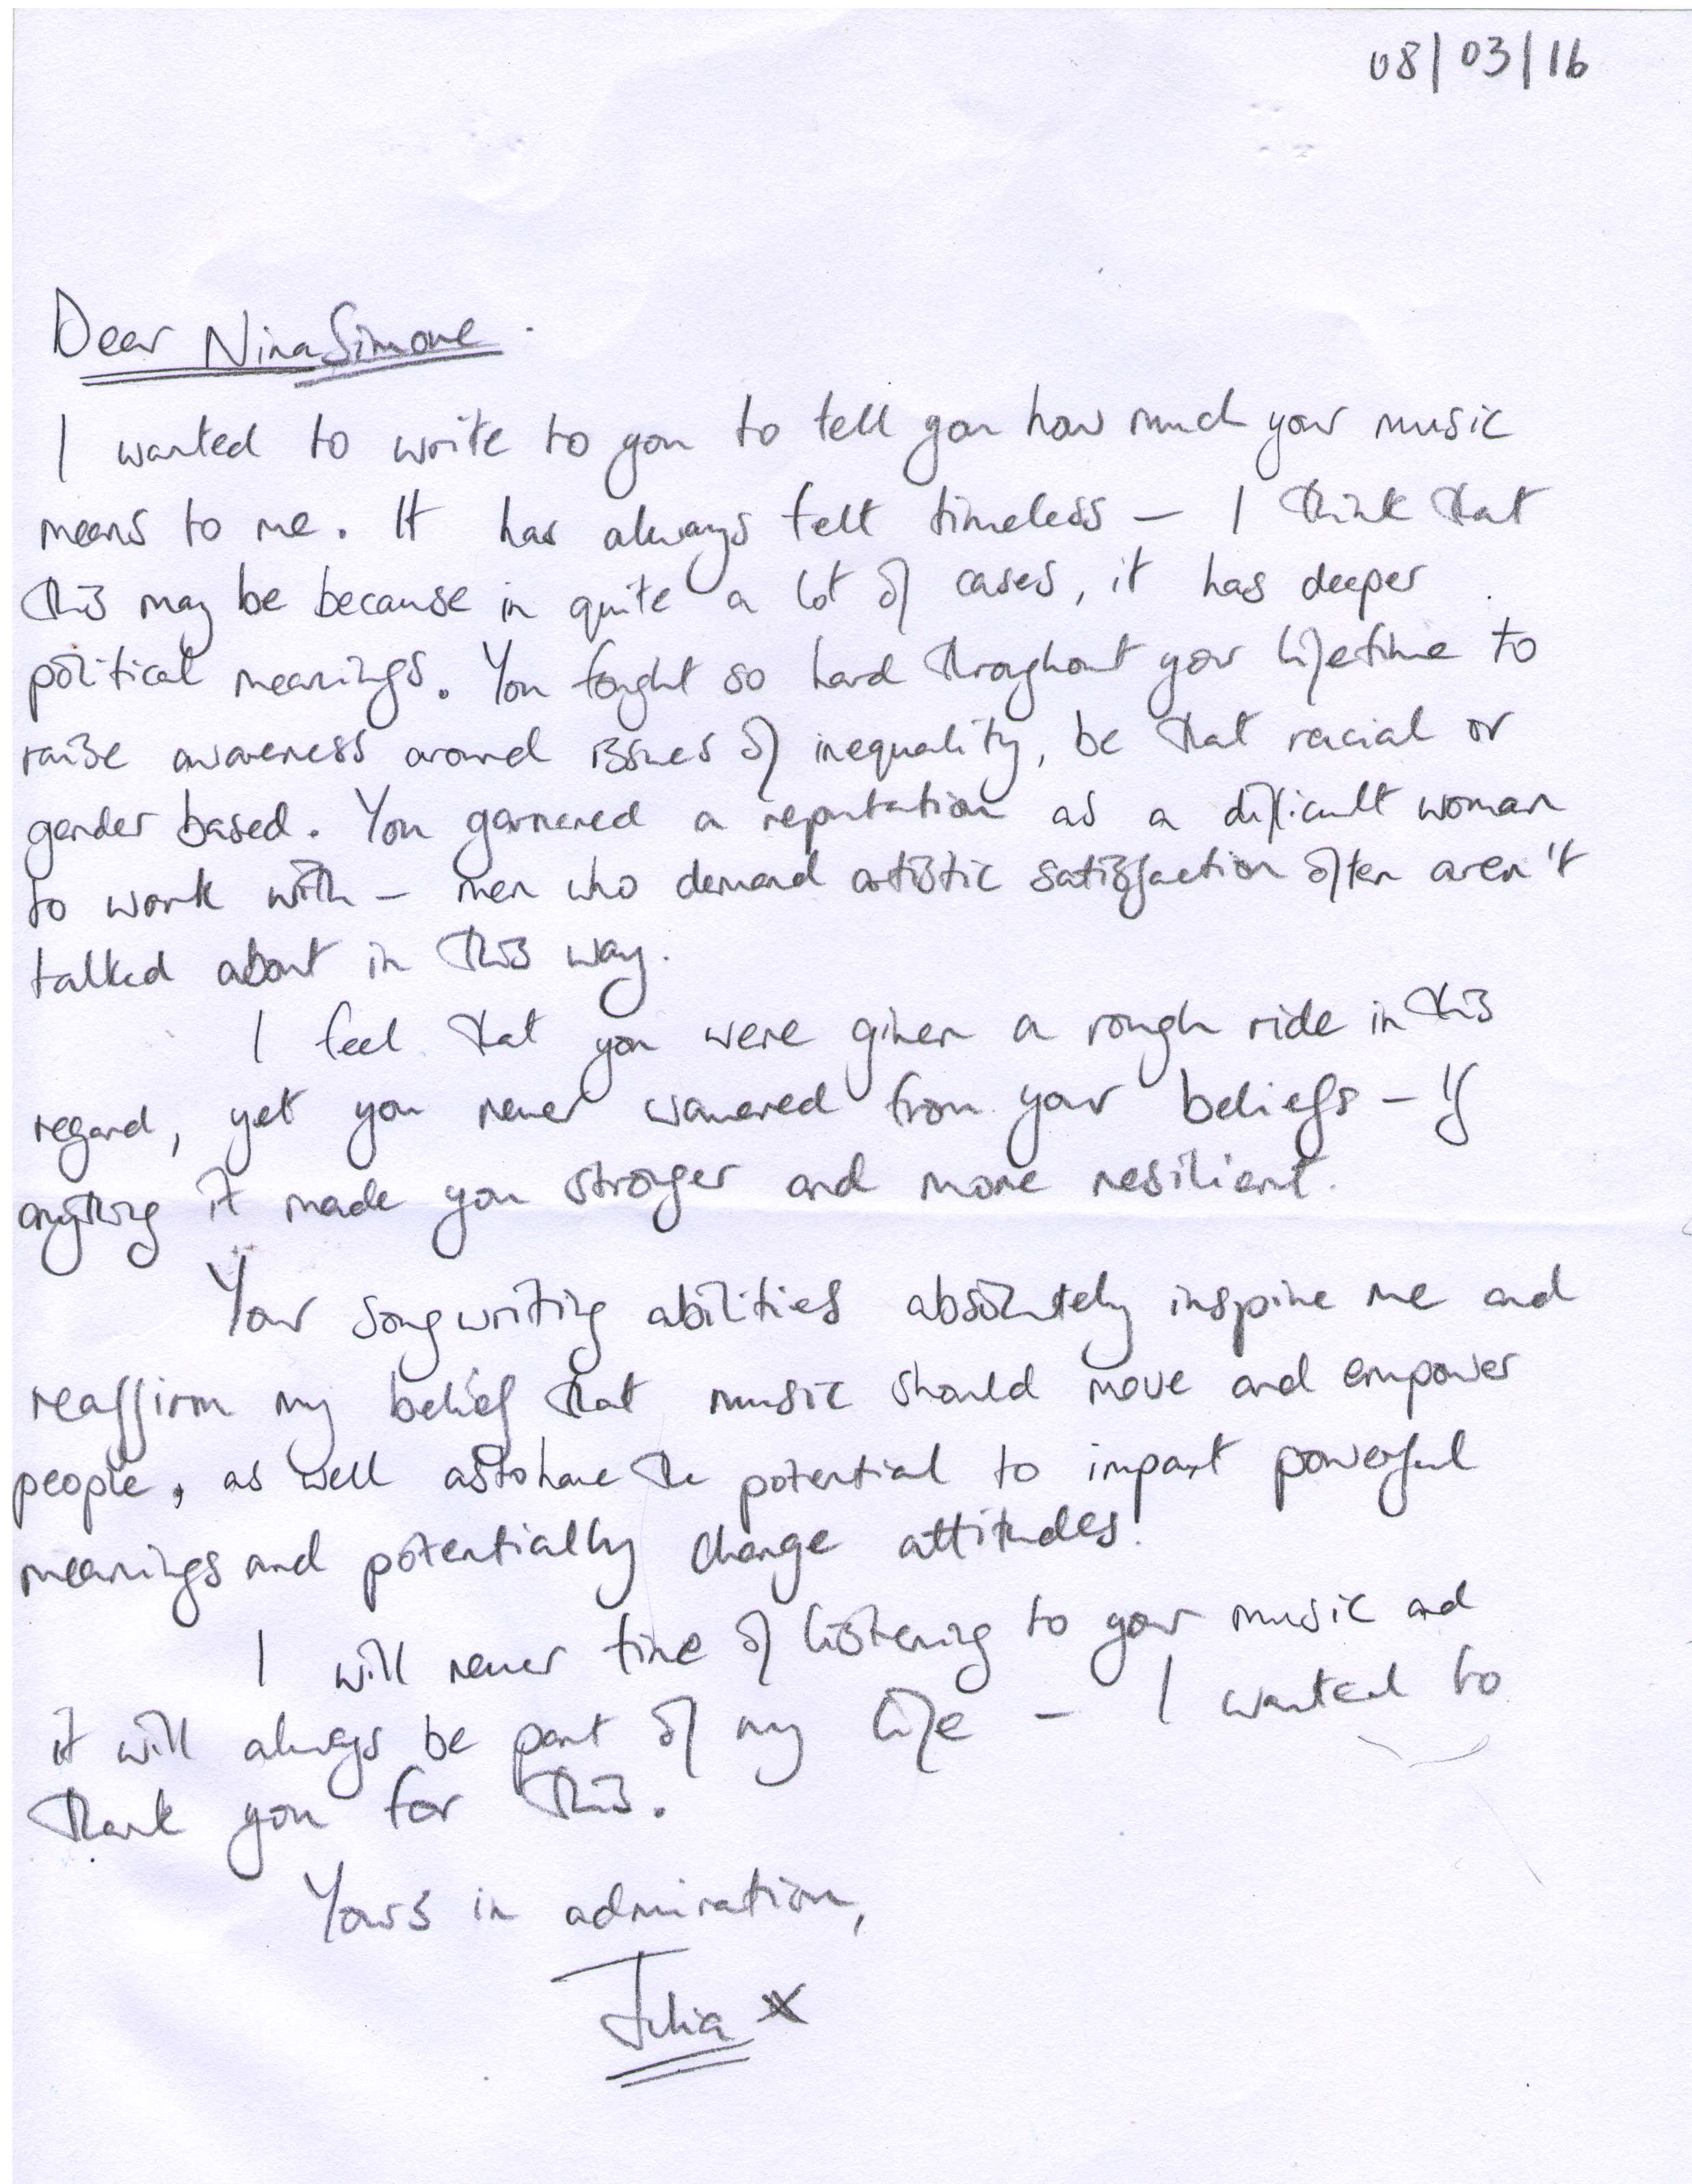 08/03/16
Dear Nina Simone.
I wanted to write to you to tell you how much your music
means to me. It has always felt timeless – I think that
this may be because in quite a lot of cases, it has deeper
political meanings. You fought so hard throughout your lifetime to
raise awareness around issues of inequality, be that racial or
gender based. You garnered a reputation as a difficult woman
to work with – men who demand artistic satisfaction often aren't
talked about in this way.
I feel that you were given a rough ride in this
regard, yet you never wavered from your beliefs – if
anything it made you stronger and more resilient.
Your songwriting abilities absolutely inspire me and
reaffirm my belief that music should move and empower
people, as well as to have the potential to impart powerful
meanings and potentially change attitudes.
I will never tire of listening to your music and
it will always be part of my life – I wanted to
thank you for this.
Yours in admiration,
Julia x